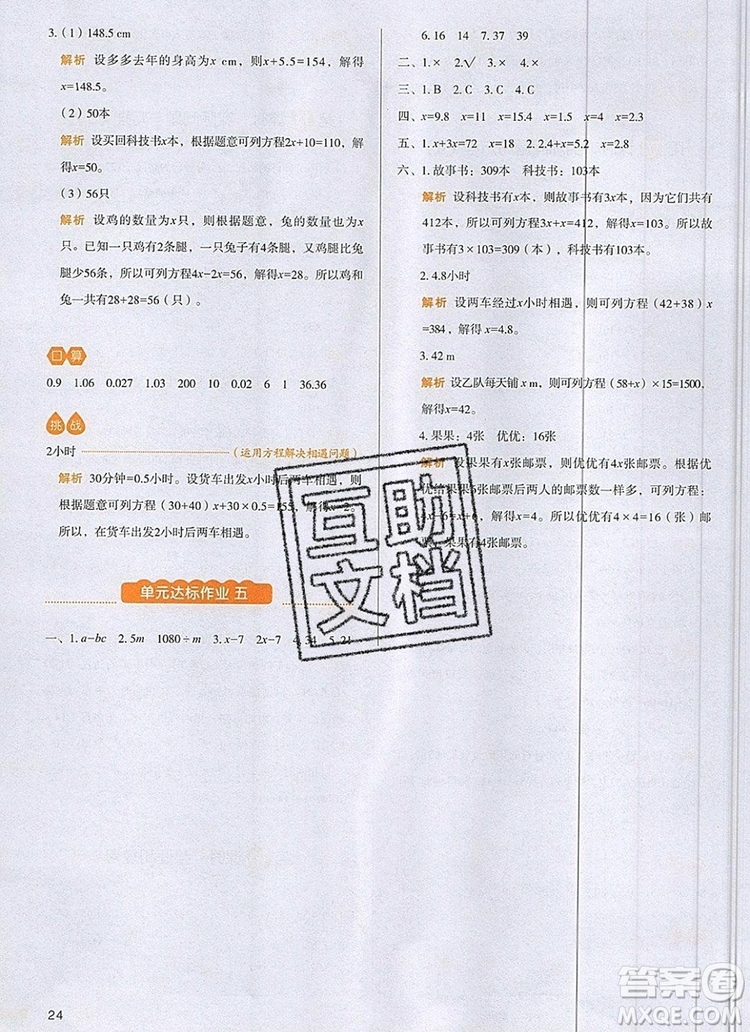 3.(1)148.5 cm
解析 设多多去年的身高为x cm,则x+5.5=154,解得
x=148.5。
(2)50本
解析 设买回科技书x本,根据题意可列方程2x+10=110,解
得x=50。
(3)56只
解析 设鸡的数量为x只,则根据题意,兔的数量也为x
只。已知一只鸡有2条腿,一只兔子有4条腿,又鸡腿比兔
腿少56条,所以可列方程4x-2x=56,解得x=28。所以鸡和
兔一共有28+28=56(只)。
口算
0.9 1.06 0.027 1.03 200 10 0.02 6 1 36.36
挑战
2小时 (运用方程解决相遇问题)
解析 30分钟=0.5小时。设货车出发x小时后两车相遇,则
根据题意可列方程(30+40)x+30×0.5=155,解得x=2。
所以,在货车出发2小时后两车相遇。
单元达标作业 五
一、1.a-bc 2.5m 1080÷m 3.x-7 2x-7 4.34 5.21
24
6.16 14 7.37 39
二、1.× 2.√ 3.× 4.×
三、1.B 2.C 3.C 4.C
四、x=9.8 x=11 x=15.4 x=1.5 x=4 x=2.3
五、1.x+3x=72 x=18 2.2.4+x=5.2 x=2.8
六、1.故事书:309本 科技书:103本
解析 设科技书有x本,则故事书有3x本,因为它们共有
412本,所以可列方程x+3x=412,解得x=103。所以故
事书有3×103=309(本),科技书有103本。
2.4.8小时
解析 设两车经过x小时相遇,则可列方程(42+38)x
=384,解得x=4.8。
3.42 m
解析 设乙队每天铺x m,则可列方程(58+x)×15=1500,
解得x=42。
4.果果:4张 优优:16张
解析 设果果有x张邮票,则优优有4x张邮票。根据优
优给果果6张邮票后两人的邮票数一样多,可列方程
4x-6=x+6,解得x=4。所以优优有4×4=16(张)邮
票,果果有4张邮票。
互助
文档
答案圈
MXQE.COM